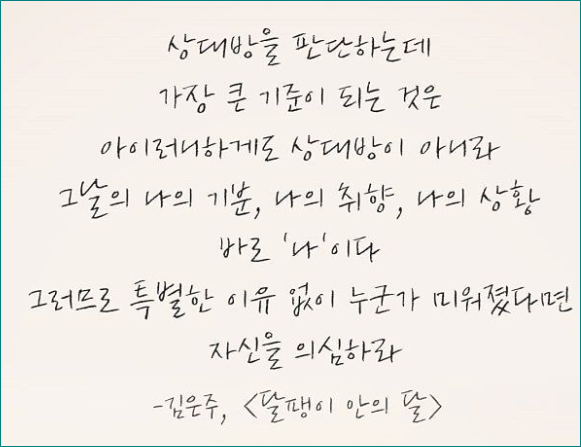 상대방을 판단하는데
가장 큰 기준이 되는 것은
아이러니하게도 상대방이 아니라
그날의 나의 기분, 나의 취향, 나의 상황
바로 '나'이다
그러므로 특별한 이유 없이 누군가 미워졌다면
자신을 의심하라
-김은주, <달팽이 안의 달>